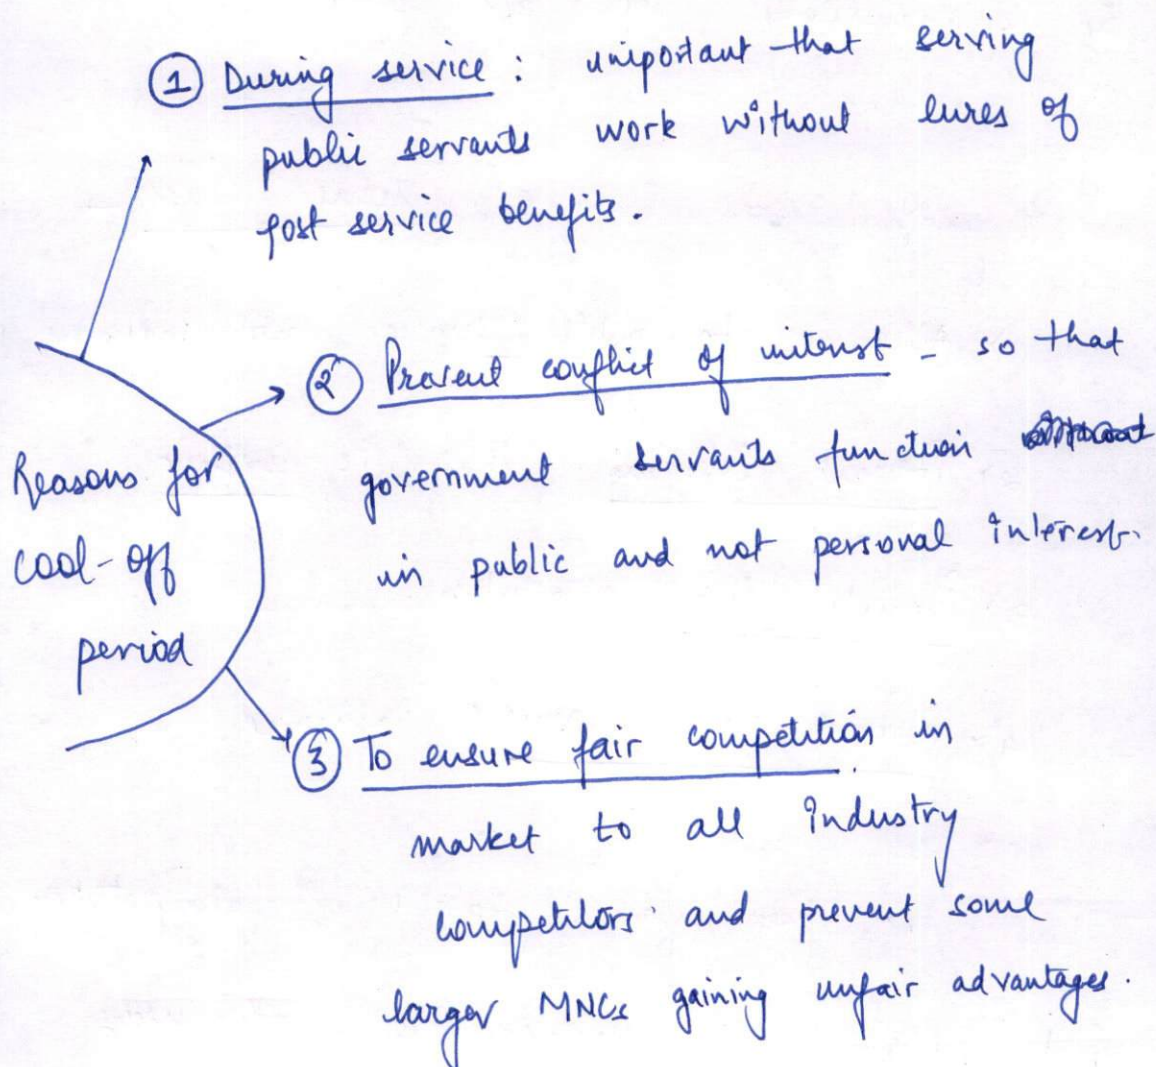 ① During service : important that serving
public servants work without lures of
post service benefits.
② Prevent conflict of interest - so that
government servants function
in public and not personal interest.
Reasons for
cool-off
period
③ To ensure fair competition in
market to all industry
competitors and prevent some
larger MNCs gaining unfair advantages.